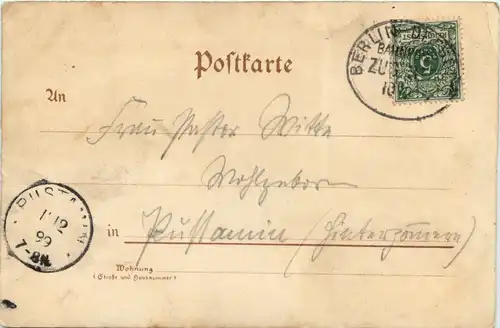 Postkarte
BERLIN
BAHNPOST
ZUG
An
Frau Pastor Witte
Wohlgebor
PUSTAMIN
11/12
99
7-8N.
in Pustamin (Hinterpommern)
Wohnung
(Straße und Hausnummer)